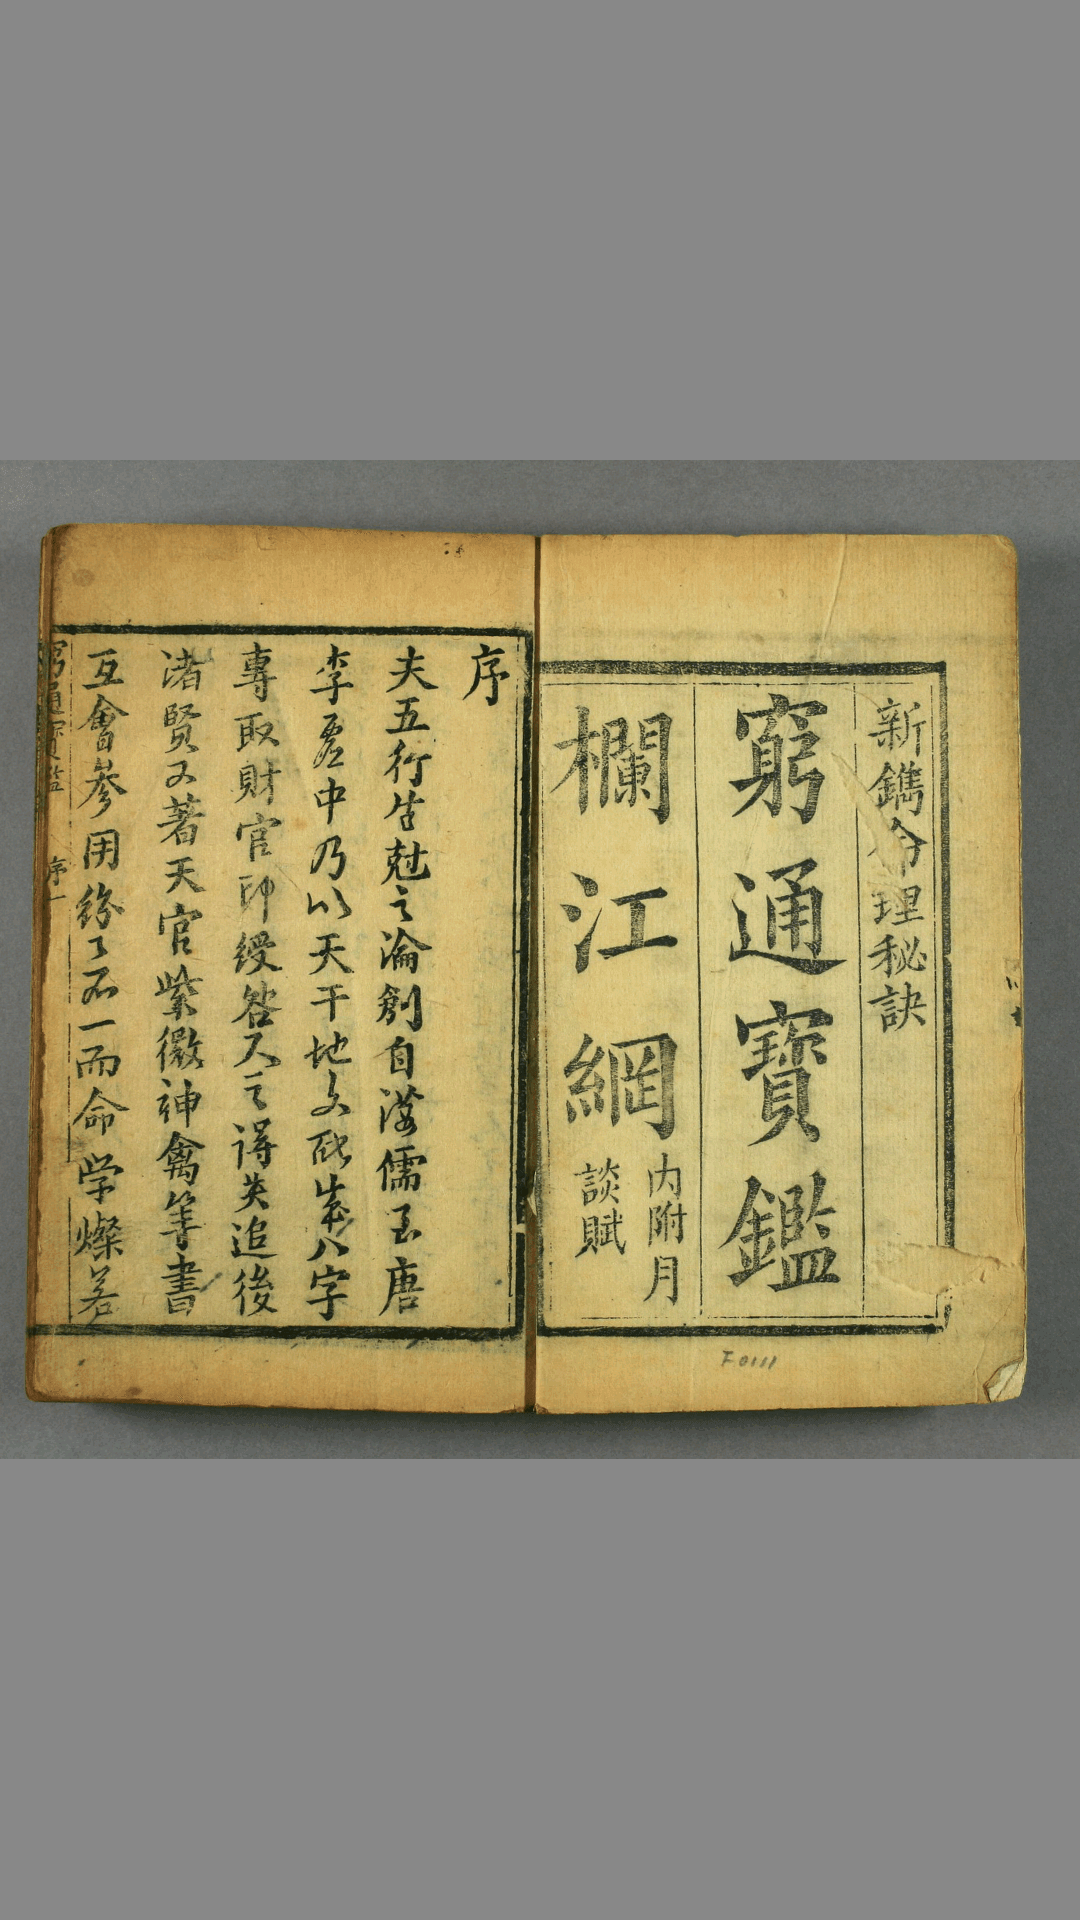 新鐫命理秘訣
窮通寶鑑
欄江網 內附月
談賦
序
夫五行生尅之淪創自漢儒至唐
李虛中乃以天干地支配成八字
專取財官印綬咎人之得失迨後
渚賢又著天官紫微神禽等書
互會參用紛々不一而命学燦若
窮通寶鑑 序一
F0111